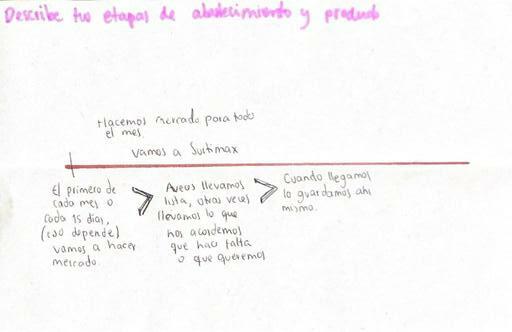 Describe tus etapas de abastecimiento y product
Hacemos mercado para todo
el mes.
vamos a Surtimax
El primero de
cada mes o
cada 15 dias,
(eso depende)
vamos a hacer
mercado.
>
Aveces llevamos
lista, otras veces
llevamos lo que
nos acordemos
que hace falta
o que queremos
>
Cuando llegamos
lo guardamos ahi
mismo.